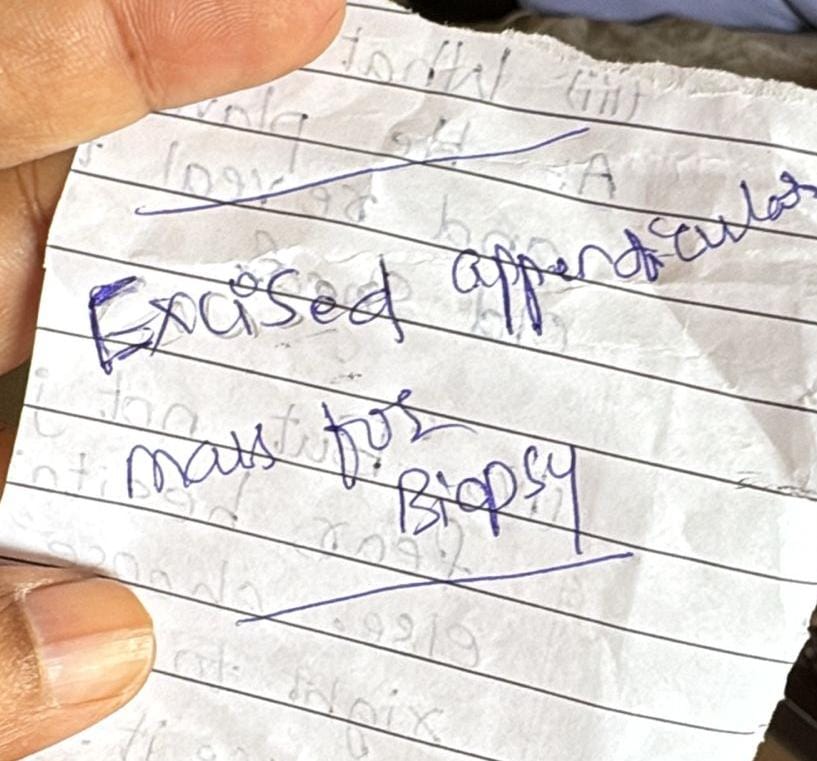 Excised appendicular
mass for
Biopsy